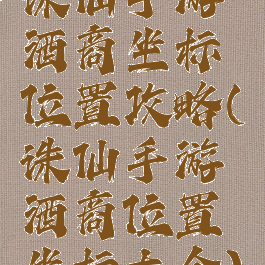 诛仙手游
酒商坐标
位置攻略(
诛仙手游
酒商位置
坐标大全)